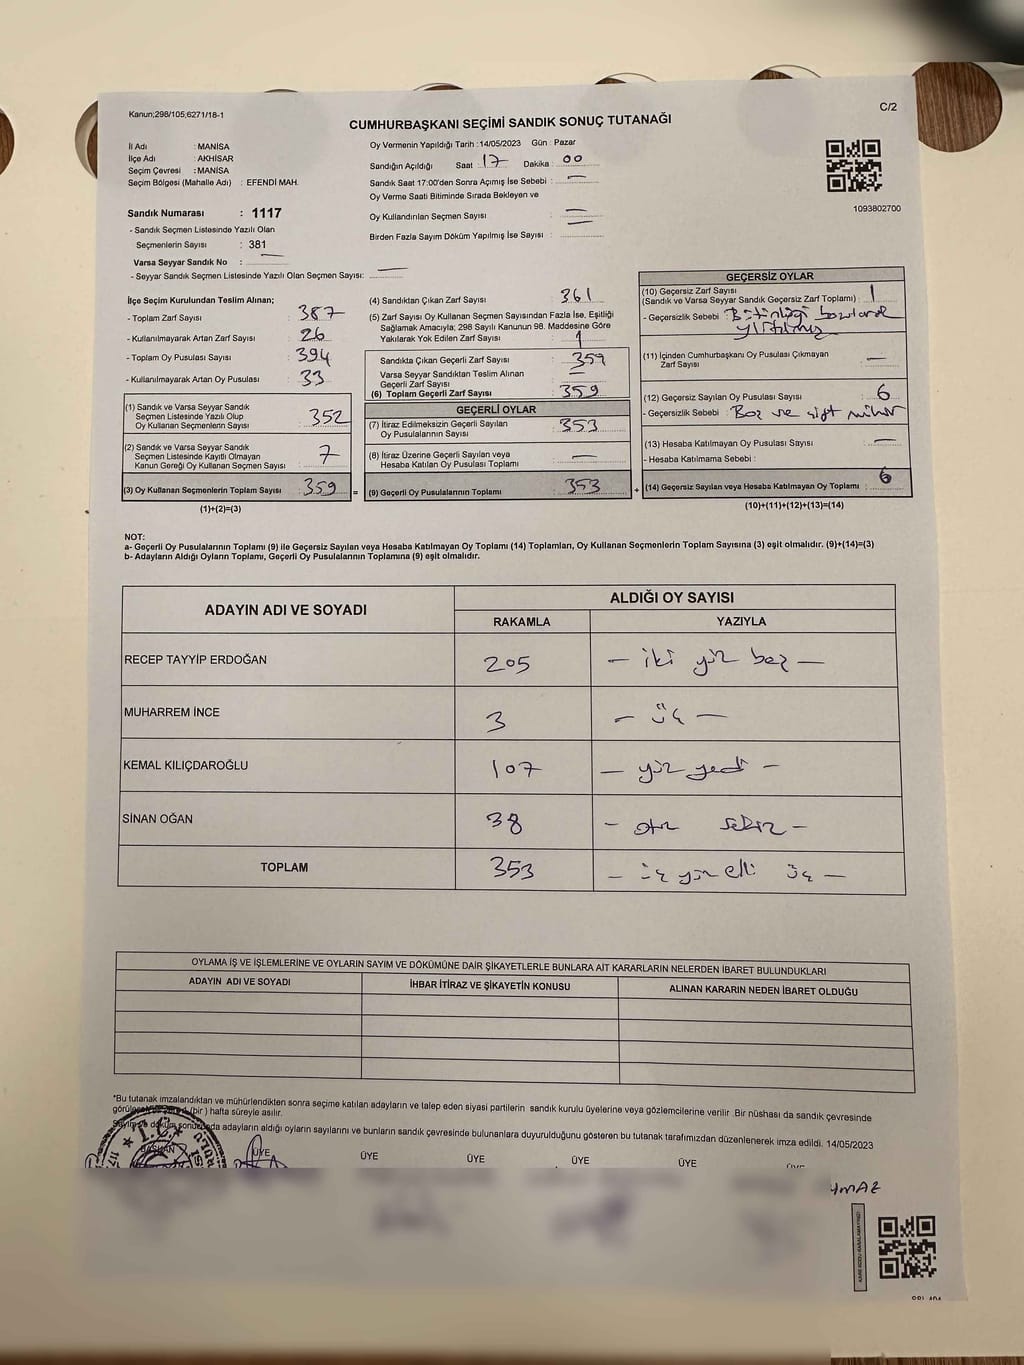 Kanun;298/105,6271/18-1
C/2
CUMHURBAŞKANI SEÇİMİ SANDIK SONUÇ TUTANAĞI
İl Adı : MANİSA
İlçe Adı : AKHİSAR
Seçim Çevresi : MANİSA
Seçim Bölgesi (Mahalle Adı) : EFENDİ MAH.
Oy Vermenin Yapıldığı Tarih :14/05/2023 Gün : Pazar
Sandığın Açıldığı Saat 17 Dakika : 00
Sandık Saat 17:00'den Sonra Açımış İse Sebebi : —
Oy Verme Saati Bitiminde Sırada Bekleyen ve
Oy Kullandırılan Seçmen Sayısı : —
Birden Fazla Sayım Döküm Yapılmış İse Sayısı : —
1093802700
Sandık Numarası : 1117
- Sandık Seçmen Listesinde Yazılı Olan
Seçmenlerin Sayısı : 381
Varsa Seyyar Sandık No : —
- Seyyar Sandık Seçmen Listesinde Yazılı Olan Seçmen Sayısı: —
İlçe Seçim Kurulundan Teslim Alınan;
- Toplam Zarf Sayısı : 387
- Kullanılmayarak Artan Zarf Sayısı : 26
- Toplam Oy Pusulası Sayısı : 394
- Kullanılmayarak Artan Oy Pusulası : 33
(1) Sandık ve Varsa Seyyar Sandık
Seçmen Listesinde Yazılı Olup
Oy Kullanan Seçmenlerin Sayısı : 352
(2) Sandık ve Varsa Seyyar Sandık
Seçmen Listesinde Kayıtlı Olmayan
Kanun Gereği Oy Kullanan Seçmen Sayısı : 7
(3) Oy Kullanan Seçmenlerin Toplam Sayısı : 359 =
(1)+(2)=(3)
(4) Sandıktan Çıkan Zarf Sayısı : 361
(5) Zarf Sayısı Oy Kullanan Seçmen Sayısından Fazla İse, Eşitliği
Sağlamak Amacıyla; 298 Sayılı Kanunun 98. Maddesine Göre
Yakılarak Yok Edilen Zarf Sayısı : 1
Sandıkta Çıkan Geçerli Zarf Sayısı : 359
Varsa Seyyar Sandıktan Teslim Alınan
Geçerli Zarf Sayısı : —
(6) Toplam Geçerli Zarf Sayısı : 359
GEÇERLİ OYLAR
(7) İtiraz Edilmeksizin Geçerli Sayılan
Oy Pusulalarının Sayısı : 353
(8) İtiraz Üzerine Geçerli Sayılan veya
Hesaba Katılan Oy Pusulası Toplamı : —
(9) Geçerli Oy Pusulalarının Toplamı : 353 +
GEÇERSİZ OYLAR
(10) Geçersiz Zarf Sayısı
(Sandık ve Varsa Seyyar Sandık Geçersiz Zarf Toplamı) : 1
- Geçersizlik Sebebi : Bütünlüğü bozularak
yırtılmış
(11) İçinden Cumhurbaşkanı Oy Pusulası Çıkmayan
Zarf Sayısı : —
(12) Geçersiz Sayılan Oy Pusulası Sayısı : 6
- Geçersizlik Sebebi : Boş ve çift mühür
(13) Hesaba Katılmayan Oy Pusulası Sayısı : —
- Hesaba Katılmama Sebebi :
(14) Geçersiz Sayılan veya Hesaba Katılmayan Oy Toplamı : 6
(10)+(11)+(12)+(13)=(14)
NOT:
a- Geçerli Oy Pusulalarının Toplamı (9) ile Geçersiz Sayılan veya Hesaba Katılmayan Oy Toplamı (14) Toplamları, Oy Kullanan Seçmenlerin Toplam Sayısına (3) eşit olmalıdır. (9)+(14)=(3)
b- Adayların Aldığı Oyların Toplamı, Geçerli Oy Pusulalarının Toplamına (9) eşit olmalıdır.
ADAYIN ADI VE SOYADI
ALDIĞI OY SAYISI
RAKAMLA YAZIYLA
RECEP TAYYİP ERDOĞAN 205 — iki yüz beş —
MUHARREM İNCE 3 — üç —
KEMAL KILIÇDAROĞLU 107 — yüz yedi —
SİNAN OĞAN 38 — otuz sekiz —
TOPLAM 353 — üç yüz elli üç —
OYLAMA İŞ VE İŞLEMLERİNE VE OYLARIN SAYIM VE DÖKÜMÜNE DAİR ŞİKAYETLERLE BUNLARA AİT KARARLARIN NELERDEN İBARET BULUNDUKLARI
ADAYIN ADI VE SOYADI İHBAR İTİRAZ VE ŞİKAYETİN KONUSU ALINAN KARARIN NEDEN İBARET OLDUĞU
*Bu tutanak imzalandıktan ve mühürlendikten sonra seçime katılan adayların ve talep eden siyasi partilerin sandık kurulu üyelerine veya gözlemcilerine verilir .Bir nüshası da sandık çevresinde
(bir ) hafta süreyle asılır.
adayların aldığı oyların sayılarını ve bunların sandık çevresinde bulunanlara duyurulduğunu gösteren bu tutanak tarafımızdan düzenlenerek imza edildi. 14/05/2023
T.C.
BAŞKAN ÜYE ÜYE ÜYE ÜYE ÜYE